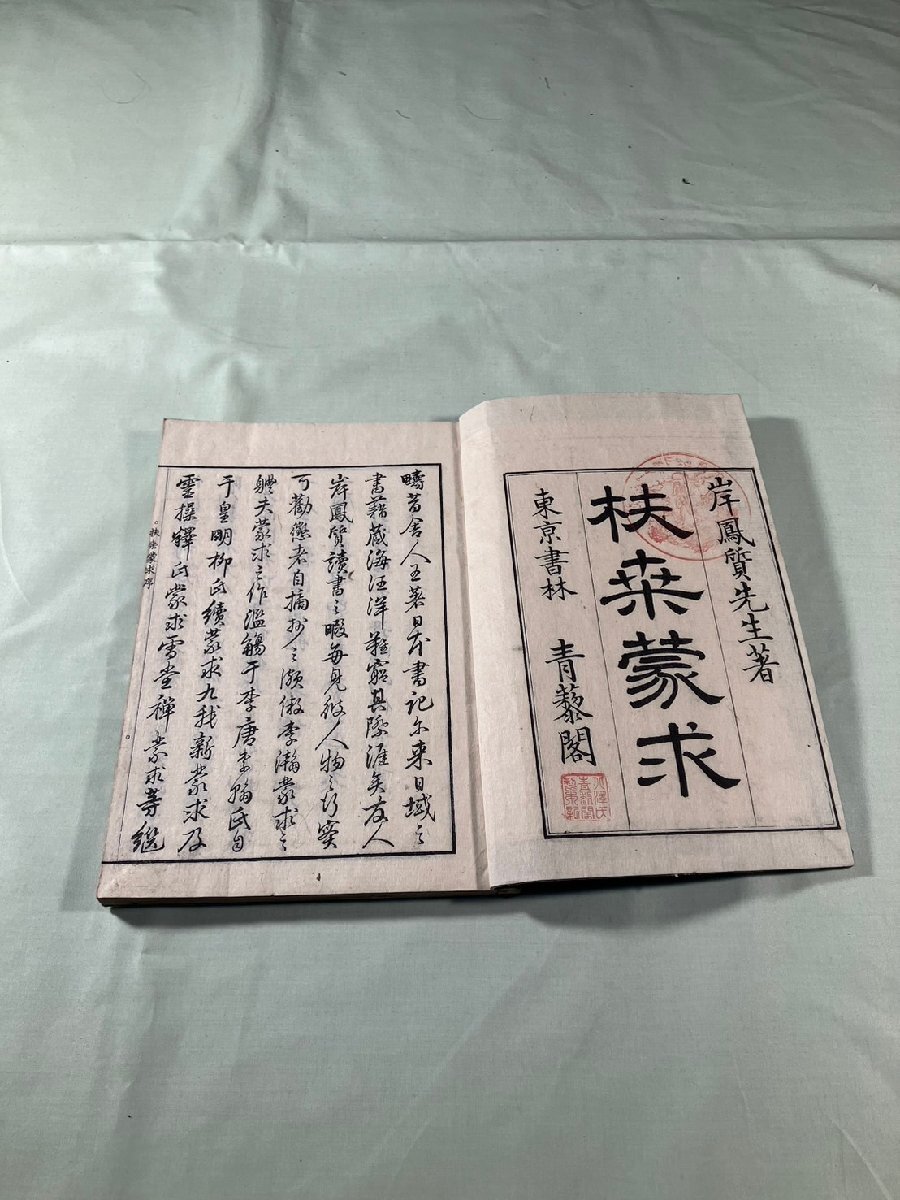 岸鳳質先生著
扶桒蒙求
東京書林 青藜閣
疇昔舍人王著日本書記尓来日域之
書籍蔵海汪洋難窮其際涯矣友人
岸鳳質讀書之暇每見彼人物之行實
可勸懲者自摘抄之瀕倣李瀚蒙求之
軆夫蒙求之作濫觴于李唐李瀚氏自
于皇明柳氏續蒙求九我新蒙求及
雲操釋氏蒙求雪堂禅蒙求等继
扶桒蒙求序